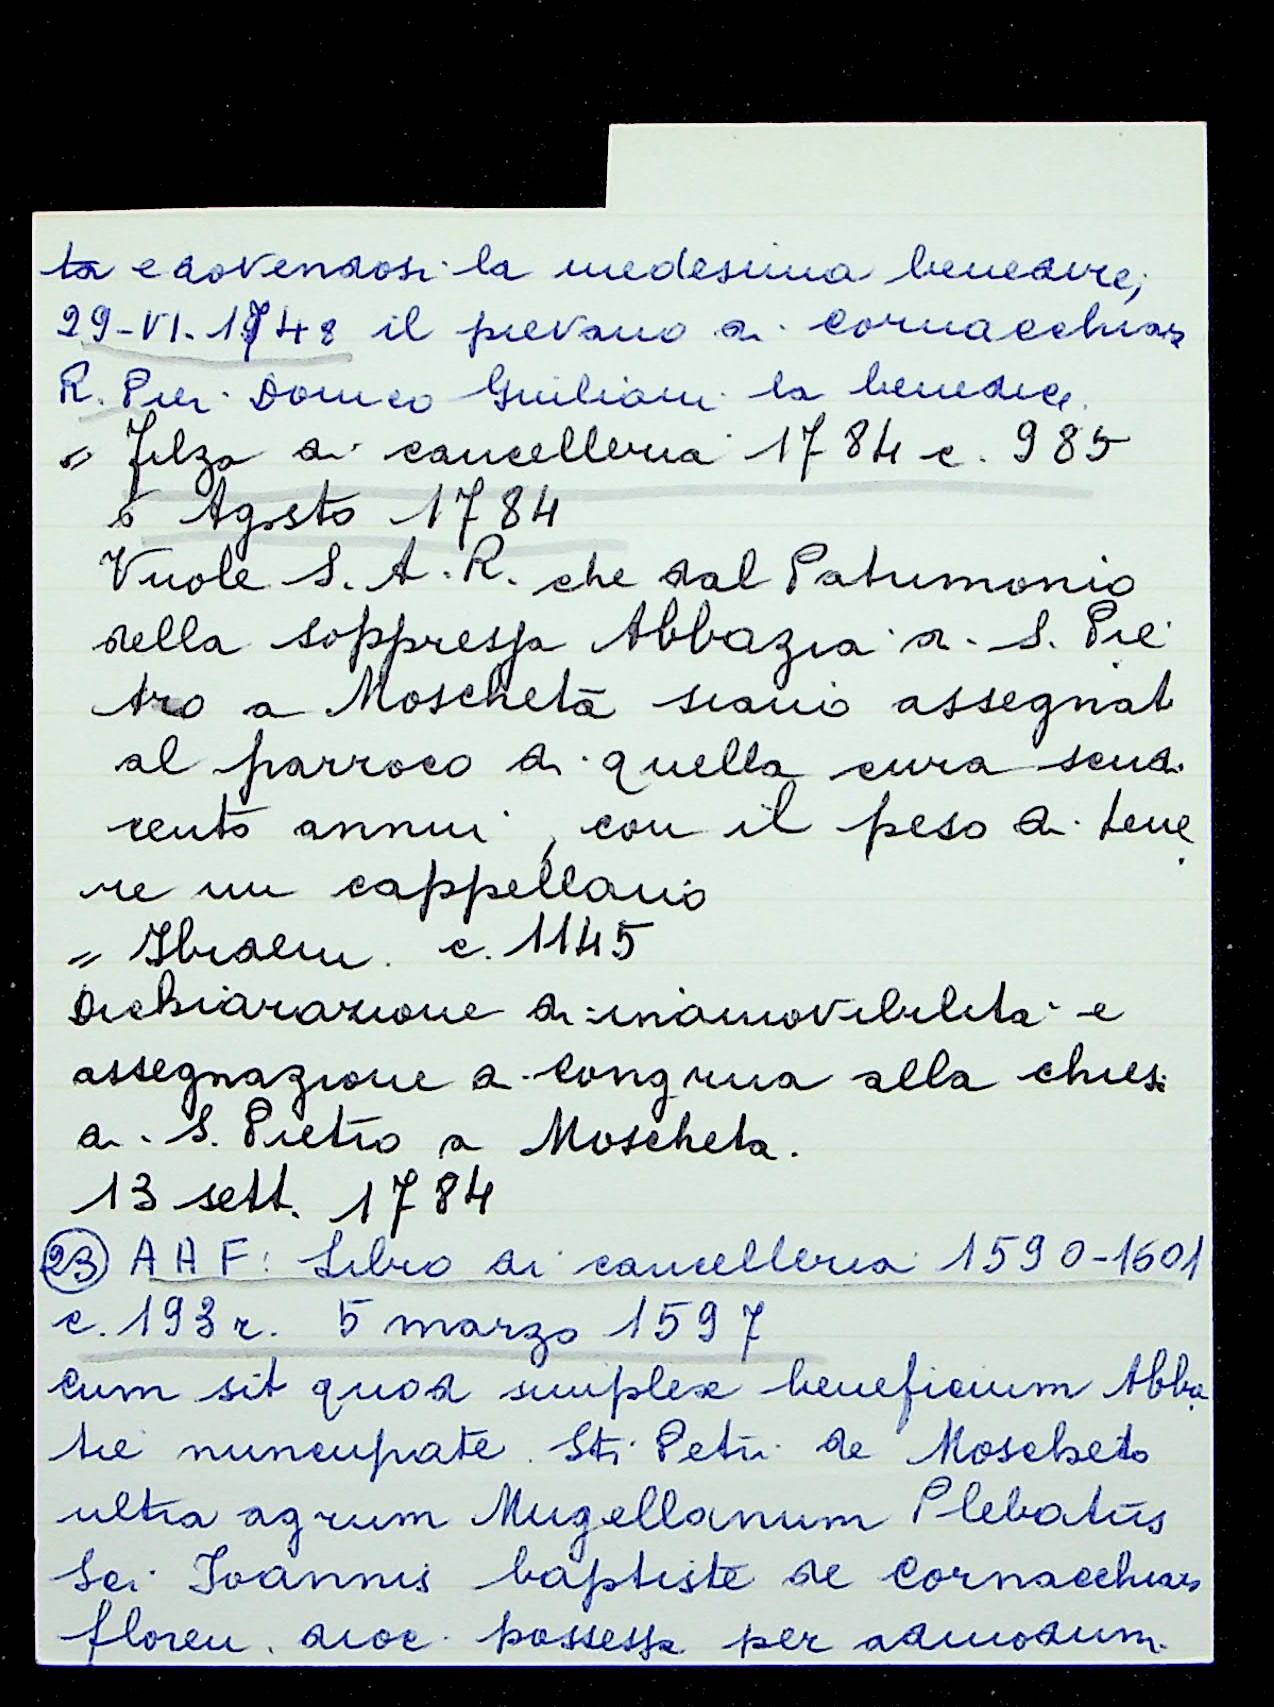 ta e dovendosi la medesima benedire,
29-VI-1748 il pievano di Cornacchiaia
R. Pier Domco Giuliani la benedice.
= Filza di cancelleria 1784 c. 985
6 Agosto 1784
Vuole S. A. R. che dal Patrimonio
della soppressa Abbazia di S. Pie
tro a Moscheta siano assegnati
al parroco di quella cura scudi
cento annui, con il peso di tene
re un cappellano
= Ibidem. c. 1145
Dichiarazione di inamovibilità e
assegnazione di congrua alla chiesa
di S. Pietro a Moscheta.
13 sett. 1784
23 AAF: Libro di cancelleria 1590-1601
c. 193 r. 5 marzo 1597
Cum sit quod simplex beneficium Abba
tie nuncupate Sti Petri de Moscheto
ultra agrum Mugellanum Plebatus
Sci Joannis baptiste de Cornacchiaia
floren. dioc. possessa per admodum